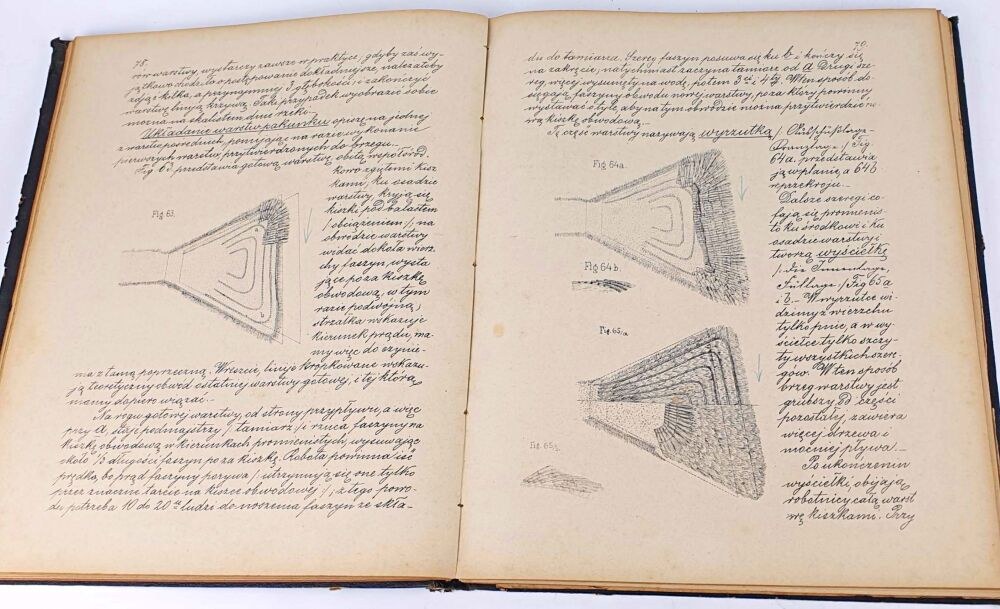 78.
rów warstwy, wystarczy zawsze w praktyce, gdyby zaś wy-
jątkowo chodziło o postępowanie dokładniejsze, należałoby
zdjąć kilka, a przynajmniej 3 głębokości i zakończyć
warstwę linią krzywą. Taki przypadek wyobrazić sobie
można na skalistem dnie rzeki.
Układanie warstw pakunku opiszę na jednej
z warstw pośrednich, pomijając na razie wykonanie
pierwszych warstw, przytwierdzonych do brzegu.
Fig 63. przedstawia gotową warstwę, obitą wspólśrod.
kowo zgiętemi kisz
kami; ku osadzie
warstwy kryją się
kiszki pod balastem
/obciążeniem/; na
obwodzie warstwy
widać dokoła wierz-
chy faszyn, wysta
jące poza kiszkę
obwodową, w tym
razie podwójną;
strzałka wskazuje
kierunek prądu, ma-
my więc do czynie-
nia z tamą poprzeczną. Wreszcie, linije kropkowane wskazu-
ją teoretyczny obwód ostatniej warstwy gotowej, i tej którą
mamy dopiero wiązać.
Na rogu gotowej warstwy, od strony przypływu, a więc
przy A, staje podmajstrzy /tamiarz/ i rzuca faszyny na
kiszkę obwodową w kierunkach promienistych, wysuwając
około ⅓ długości faszyn poza kiszkę. Robota powinna iść
prędko, bo prąd faszyny porywa /utrzymują się one tylko
przez znaczne tarcie na kiszce obwodowej/; z tego powo-
du potrzeba 10 do 20 ludzi do noszenia faszyn ze skła-
Fig 63.
79.
du do tamiarza. Szereg faszyn posuwa się ku b i kończy się
na zakręcie, natychmiast zaczyna tamiarz od a drugi sze-
reg, więcej wysunięty na wodę, potem 3ci i 4ty. W ten sposób do-
sięgają faszyny obwodu nowej warstwy, poza który powinny
wystawać o tyle, aby na tym obwodzie można przytwierdzić no-
wą kiszkę obwodową.
Tę część warstwy nazywają wyrzutką /
Fig. 64a. przedstawia
ją w planie, a 64b
w przekroju.
Dalsze szeregi co-
fają się promienis-
to ku środkowi i ku
osadzie warstwy i
tworzą wyściełkę
/die Innenlage,
Füllage/ Fig 65a
i b. W wyrzutce wi-
dzimy z wierzchu
tylko pnie, a w wy-
ściełce tylko szczy-
ty wszystkich szere-
gów. W ten sposób
brzeg warstwy jest
grubszy od części
pozostałej, zawiera
więcej drzewa i
mocniej pływa.
Po ukończeniu
wyściełki, obijają
robotnicy całą warst
wę kiszkami. Przy
Fig 64a.
Fig 64b.
Fig. 65a
fig. 65b.